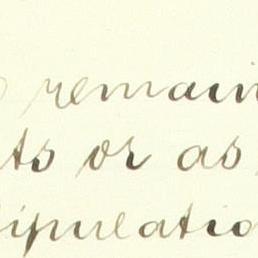 remain
ts or as
ipulatio